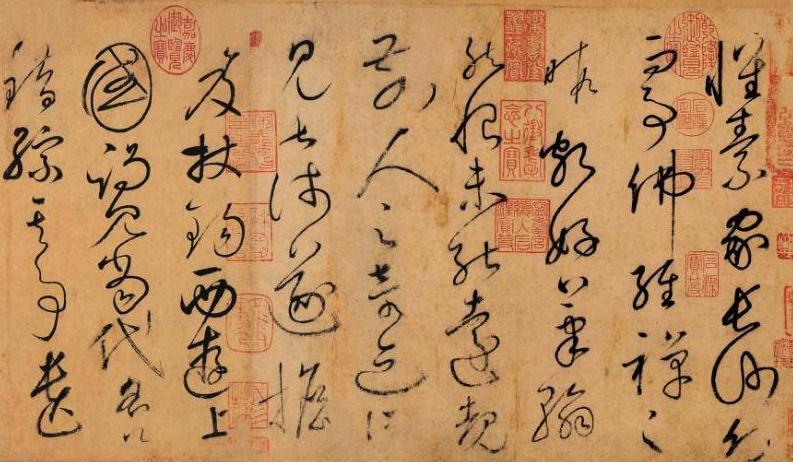 懷素家長沙幼
而事佛經禪之
暇頗好筆翰
然恨未能遠覩
前人之奇迹所
見甚淺遂擔
笈杖錫西遊上
國謁見當代名公
錯綜其事遺
嘉慶御覽之寶